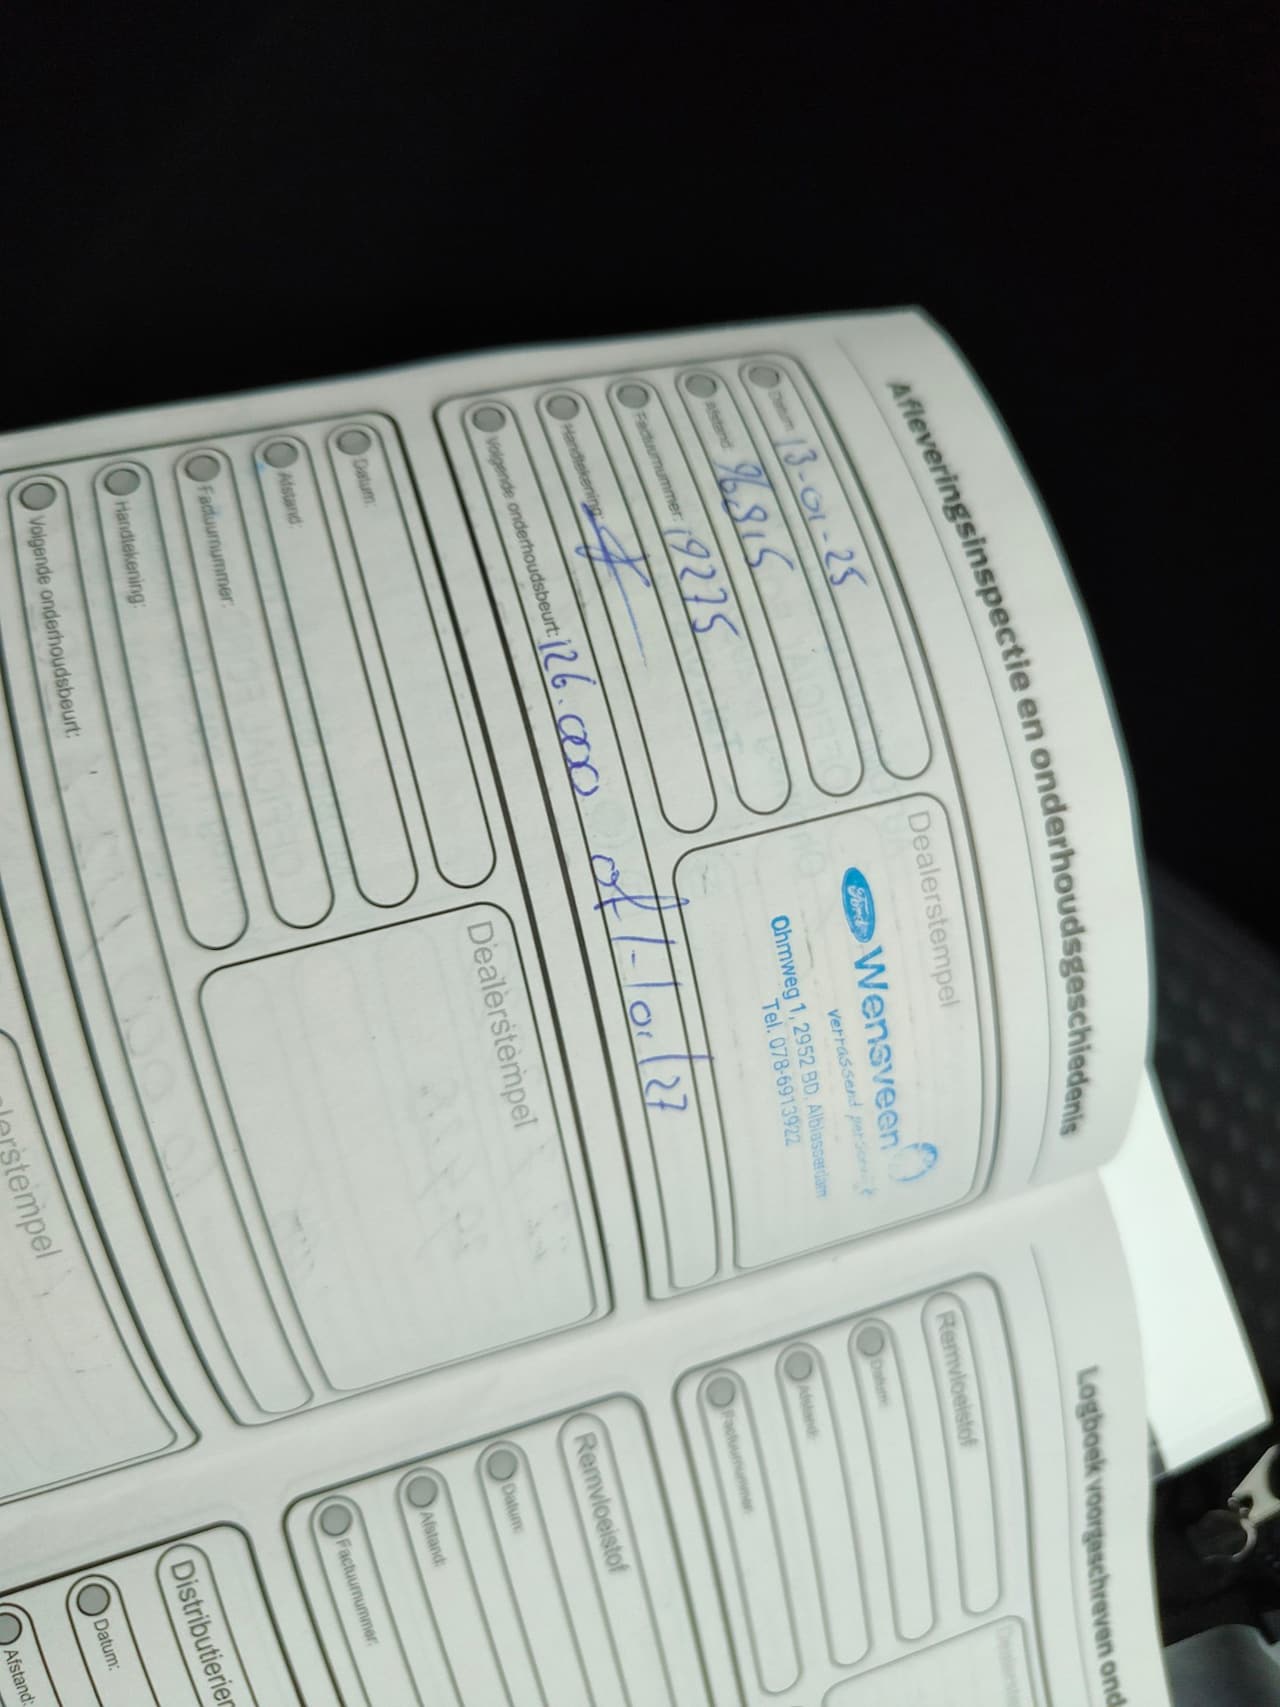 Afleveringsinspectie en onderhoudsgeschiedenis
Datum: 13-01-25
Afstand: 96.915
Factuurnummer: 19275
Handtekening:
Volgende onderhoudsbeurt: 126.000 of 1-1 01/27
Dealerstempel
Ford Wensveen
verrassend persoonlijk
Ohmweg 1, 2952 BD, Alblasserdam
Tel. 078-6913922
Datum:
Afstand:
Factuurnummer:
Handtekening:
Volgende onderhoudsbeurt:
Dealerstempel
Logboek voorgeschreven ond
Remvloeistof
Datum:
Afstand:
Factuurnummer:
Remvloeistof
Datum:
Afstand:
Factuurnummer:
Distributierien
Datum:
Afstand: